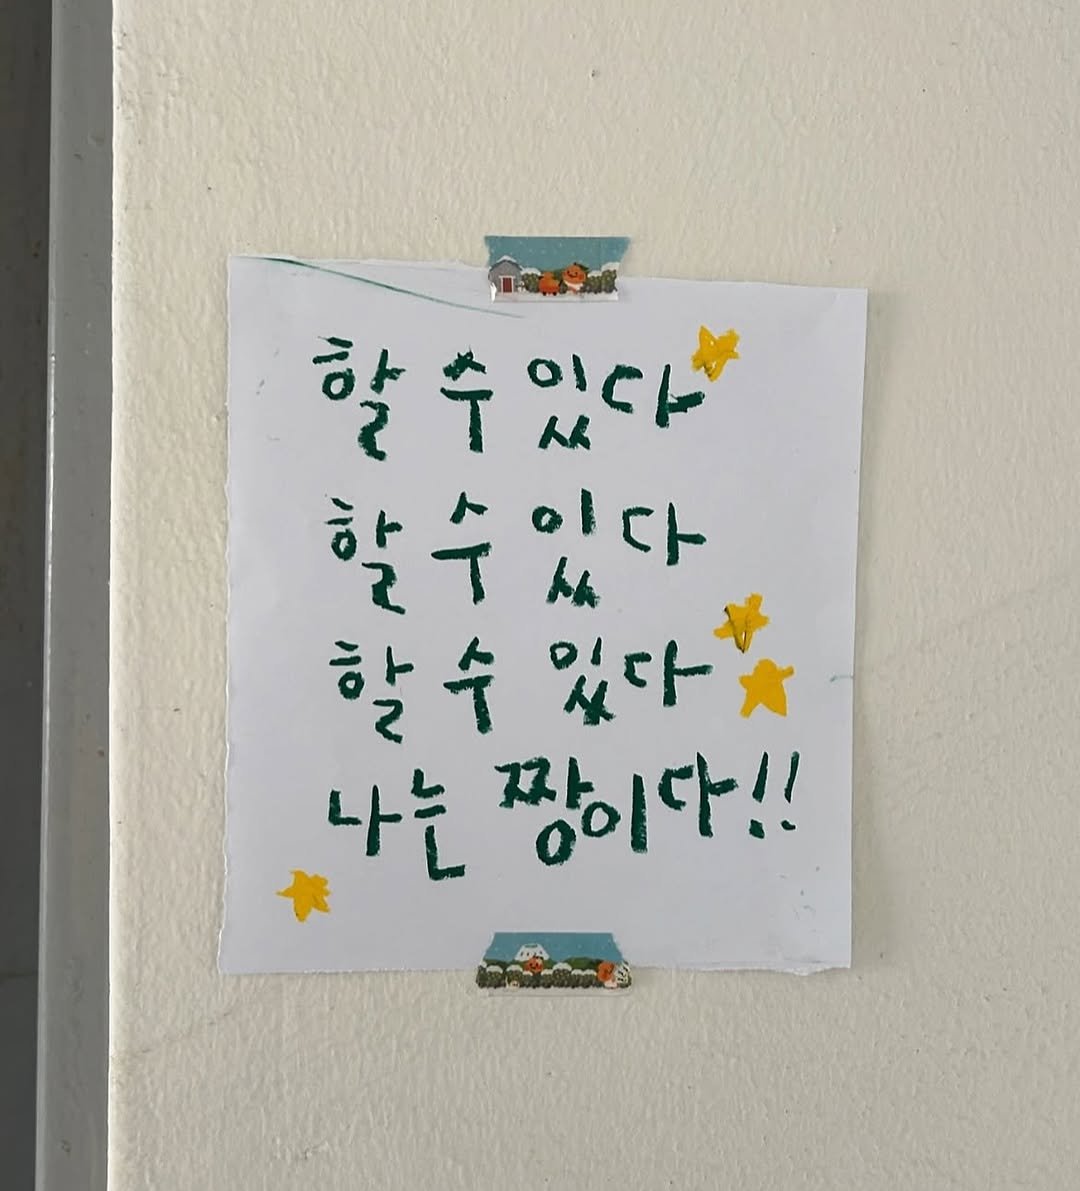 할 수 있다
할 수 있다
할 수 있다
나는 짱이다!!